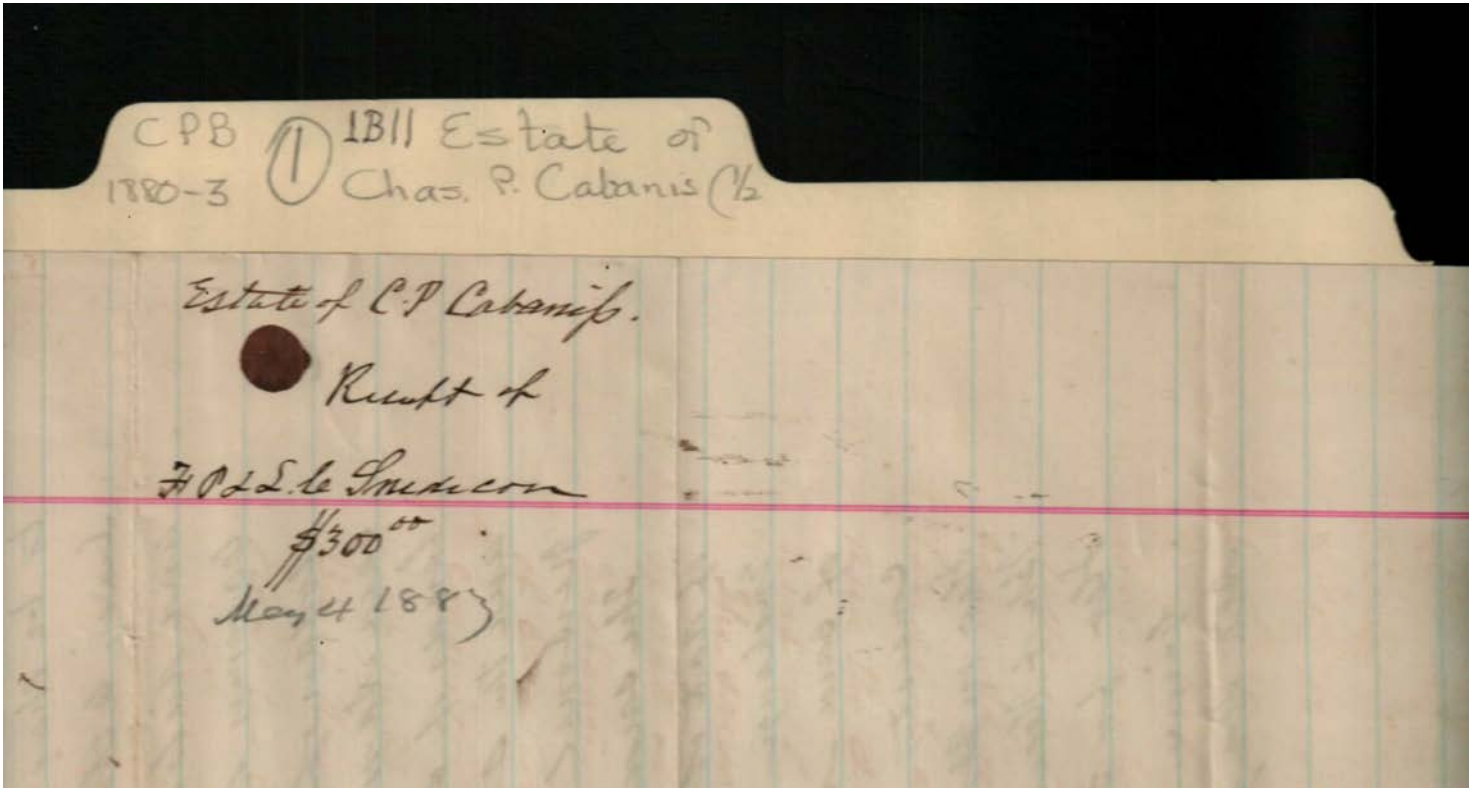 CPB ① 1B11 Estate of
1880-3 Chas. P. Cabanis (1/2
Estate of C.P Cabaniss.
Receipt of
F P & E. C Snedecor
$300 00
May 4 1883